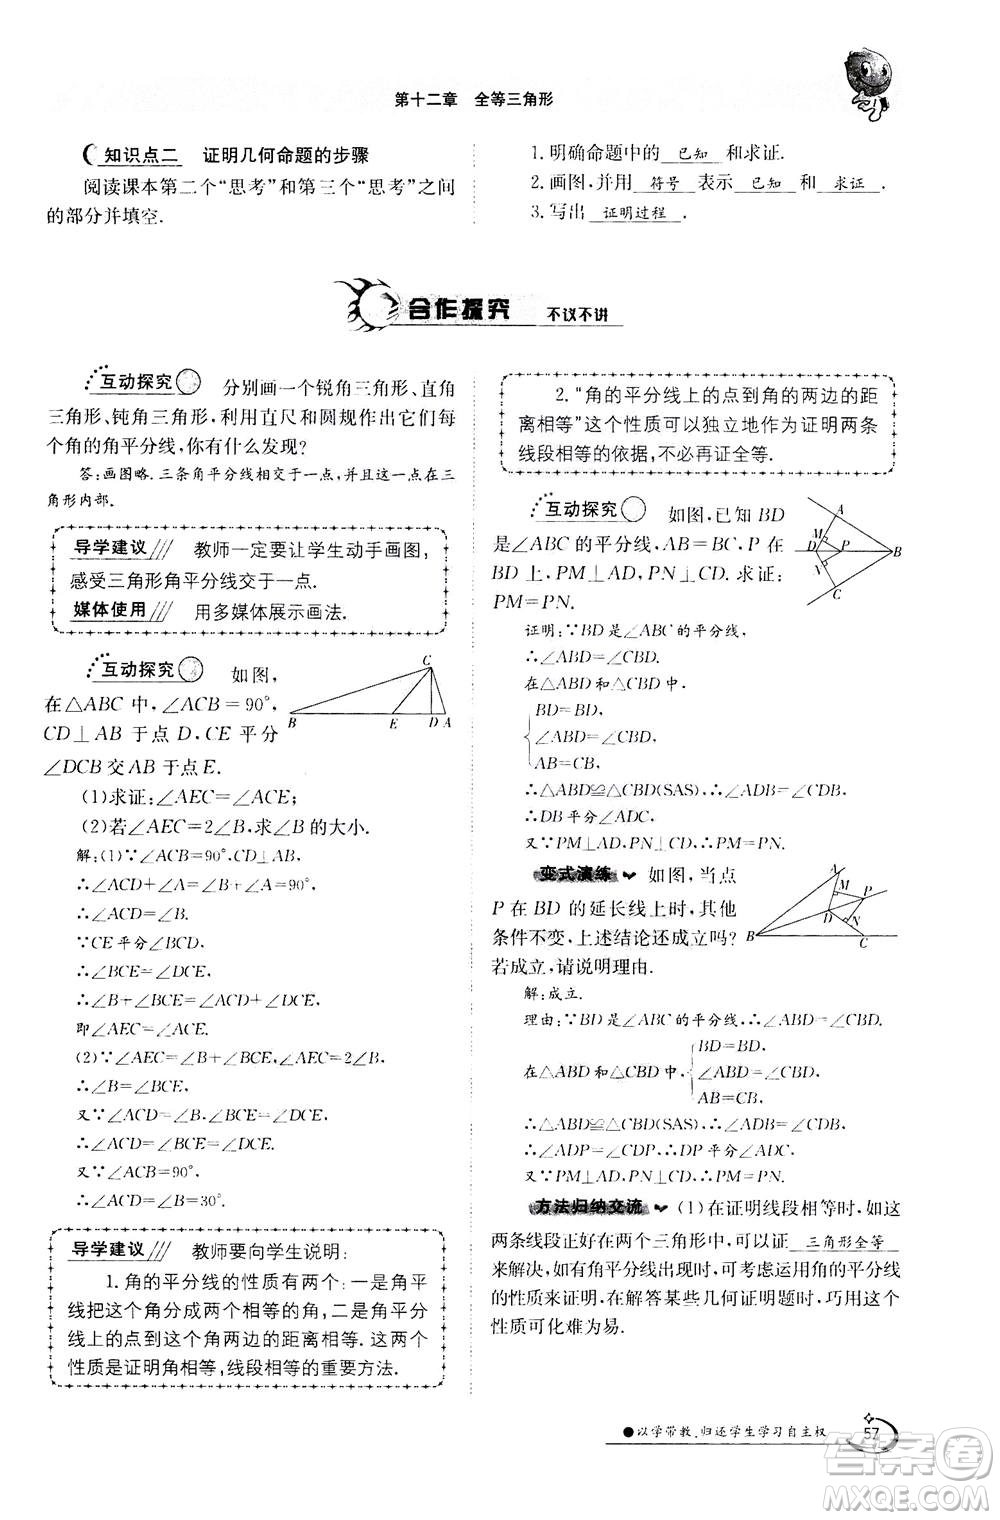 第十二章　全等三角形
知识点二　证明几何命题的步骤
阅读课本第二个“思考”和第三个“思考”之间
的部分并填空.
1.明确命题中的 已知 和求证.
2.画图,并用 符号 表示 已知 和 求证 .
3.写出 证明过程 .
合作探究 不议不讲
互动探究 分别画一个锐角三角形、直角
三角形、钝角三角形,利用直尺和圆规作出它们每
个角的角平分线,你有什么发现?
答:画图略.三条角平分线相交于一点,并且这一点在三
角形内部.
导学建议 教师一定要让学生动手画图,
感受三角形角平分线交于一点.
媒体使用 用多媒体展示画法.
互动探究 如图,
在△ABC 中,∠ACB=90°,
CD⊥AB 于点 D,CE 平分
∠DCB 交 AB 于点 E.
C
B E D A
(1)求证:∠AEC=∠ACE;
(2)若∠AEC=2∠B,求∠B 的大小.
解:(1)∵∠ACB=90°,CD⊥AB,
∴∠ACD+∠A=∠B+∠A=90°,
∴∠ACD=∠B.
∵CE 平分∠BCD,
∴∠BCE=∠DCE,
∴∠B+∠BCE=∠ACD+∠DCE,
即∠AEC=∠ACE.
(2)∵∠AEC=∠B+∠BCE,∠AEC=2∠B,
∴∠B=∠BCE,
又∵∠ACD=∠B,∠BCE=∠DCE,
∴∠ACD=∠BCE=∠DCE.
又∵∠ACB=90°,
∴∠ACD=∠B=30°.
导学建议 教师要向学生说明:
1.角的平分线的性质有两个:一是角平
线把这个角分成两个相等的角,二是角平分
线上的点到这个角两边的距离相等.这两个
性质是证明角相等,线段相等的重要方法.
2.“角的平分线上的点到角的两边的距
离相等”这个性质可以独立地作为证明两条
线段相等的依据,不必再证全等.
互动探究 如图,已知 BD
是∠ABC 的平分线,AB=BC,P 在
BD 上,PM⊥AD,PN⊥CD.求证:
PM=PN.
A
M
D P B
C
证明:∵BD是∠ABC 的平分线,
∴∠ABD=∠CBD.
在△ABD 和△CBD 中,
BD=BD,
∠ABD=∠CBD,
AB=CB,
∴△ABD≌△CBD(SAS),∴∠ADB=∠CDB,
∴DB 平分∠ADC,
又∵PM⊥AD,PN⊥CD,∴PM=PN.
变式演练 如图,当点
P 在 BD 的延长线上时,其他
条件不变,上述结论还成立吗?
若成立,请说明理由.
A
M P
D N
B C
解:成立.
理由:∵BD是∠ABC 的平分线,∴∠ABD=∠CBD.
BD=BD,
在△ABD 和△CBD 中, ∠ABD=∠CBD,
AB=CB,
∴△ABD≌△CBD(SAS),∴∠ADB=∠CDB,
∴∠ADP=∠CDP,∴DP 平分∠ADC,
又∵PM⊥AD,PN⊥CD,∴PM=PN.
方法归纳交流 (1)在证明线段相等时,如
两条线段正好在两个三角形中,可以证 三角形全等
来解决,如有角平分线出现时,可考虑运用角的平分线
的性质来证明.在解答某些几何证明题时,巧用这个
性质可化难为易.
●以学带教,归还学生学习自主权
57
答案圈
MXQE.COM